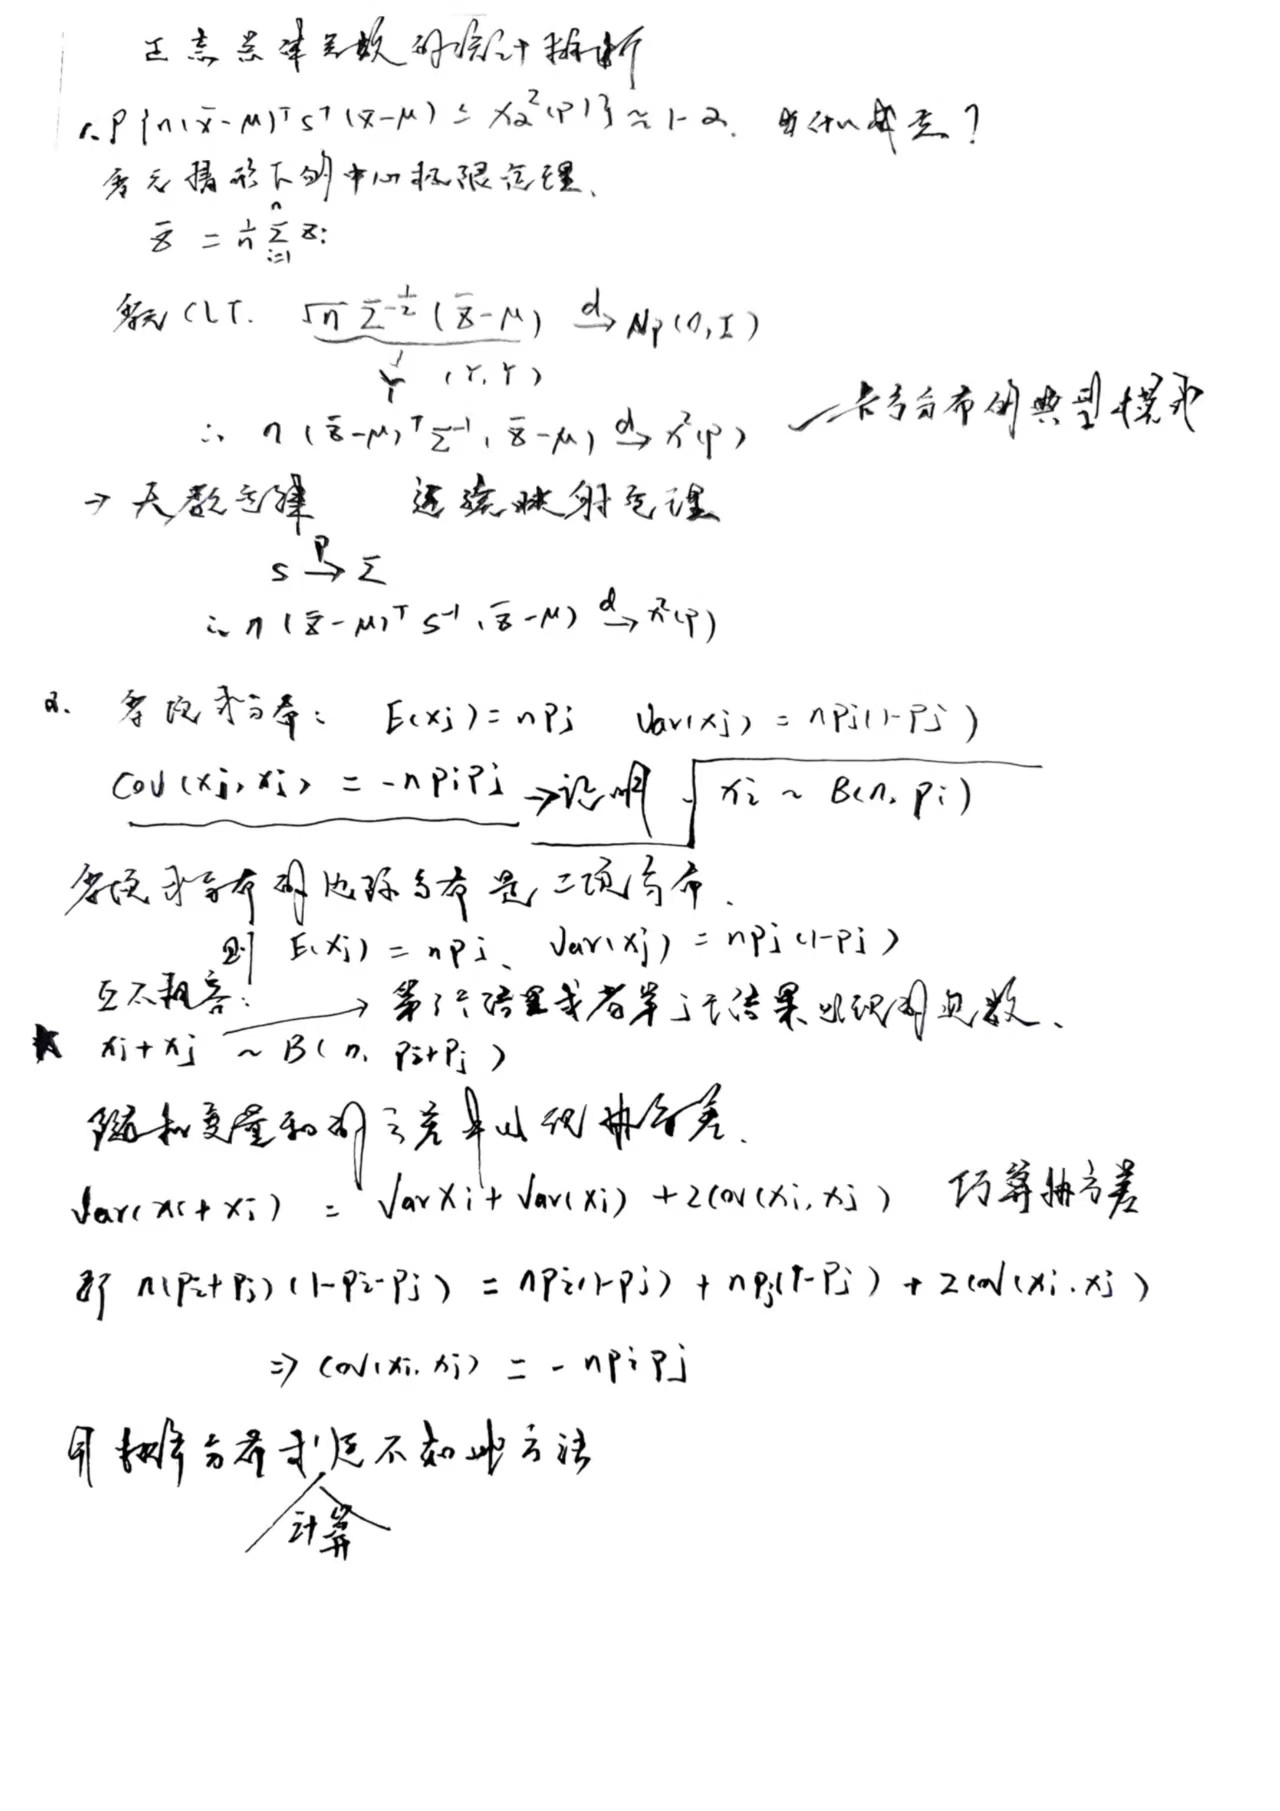 正态总体参数的统计推断
1. P{n(x̄-μ)ᵀS⁻¹(x̄-μ) ≤ χα²(p)} ≈ 1-α. 为什么成立？
多元情形下的中心极限定理.
x̄ = 1/n Σ_{i=1}^{n} xᵢ
多元CLT. √n Σ^{-1/2} (x̄-μ) →d Np(0,I)
Y (Y,Y)
∴ n(x̄-μ)ᵀΣ⁻¹(x̄-μ) →d χ²(p) 卡方分布的典型模式
→ 大数定律 连续映射定理
S →P Σ
∴ n(x̄-μ)ᵀS⁻¹(x̄-μ) →d χ²(p)
2. 多项式分布: E(xj)=npj Var(xj)=npj(1-pj)
Cov(xj,xj) = -npipj → 证明 xi ~ B(n, pi)
多项式分布的边际分布是二项分布.
则 E(xj)=npj、Var(xj)=npj(1-pj)
互不相容: → 第i个结果或者第j个结果出现的次数.
★ xi+xj ~ B(n, pi+pj)
随机变量和的方差中出现协方差.
Var(xi+xj) = Var xi + Var(xj) + 2Cov(xi,xj) 巧算协方差
即 n(pi+pj)(1-pi-pj) = npi(1-pj) + npj(1-pj) + 2Cov(xi,xj)
⇒ Cov(xi,xj) = -npipj
用概率分布求 不如此方法
计算